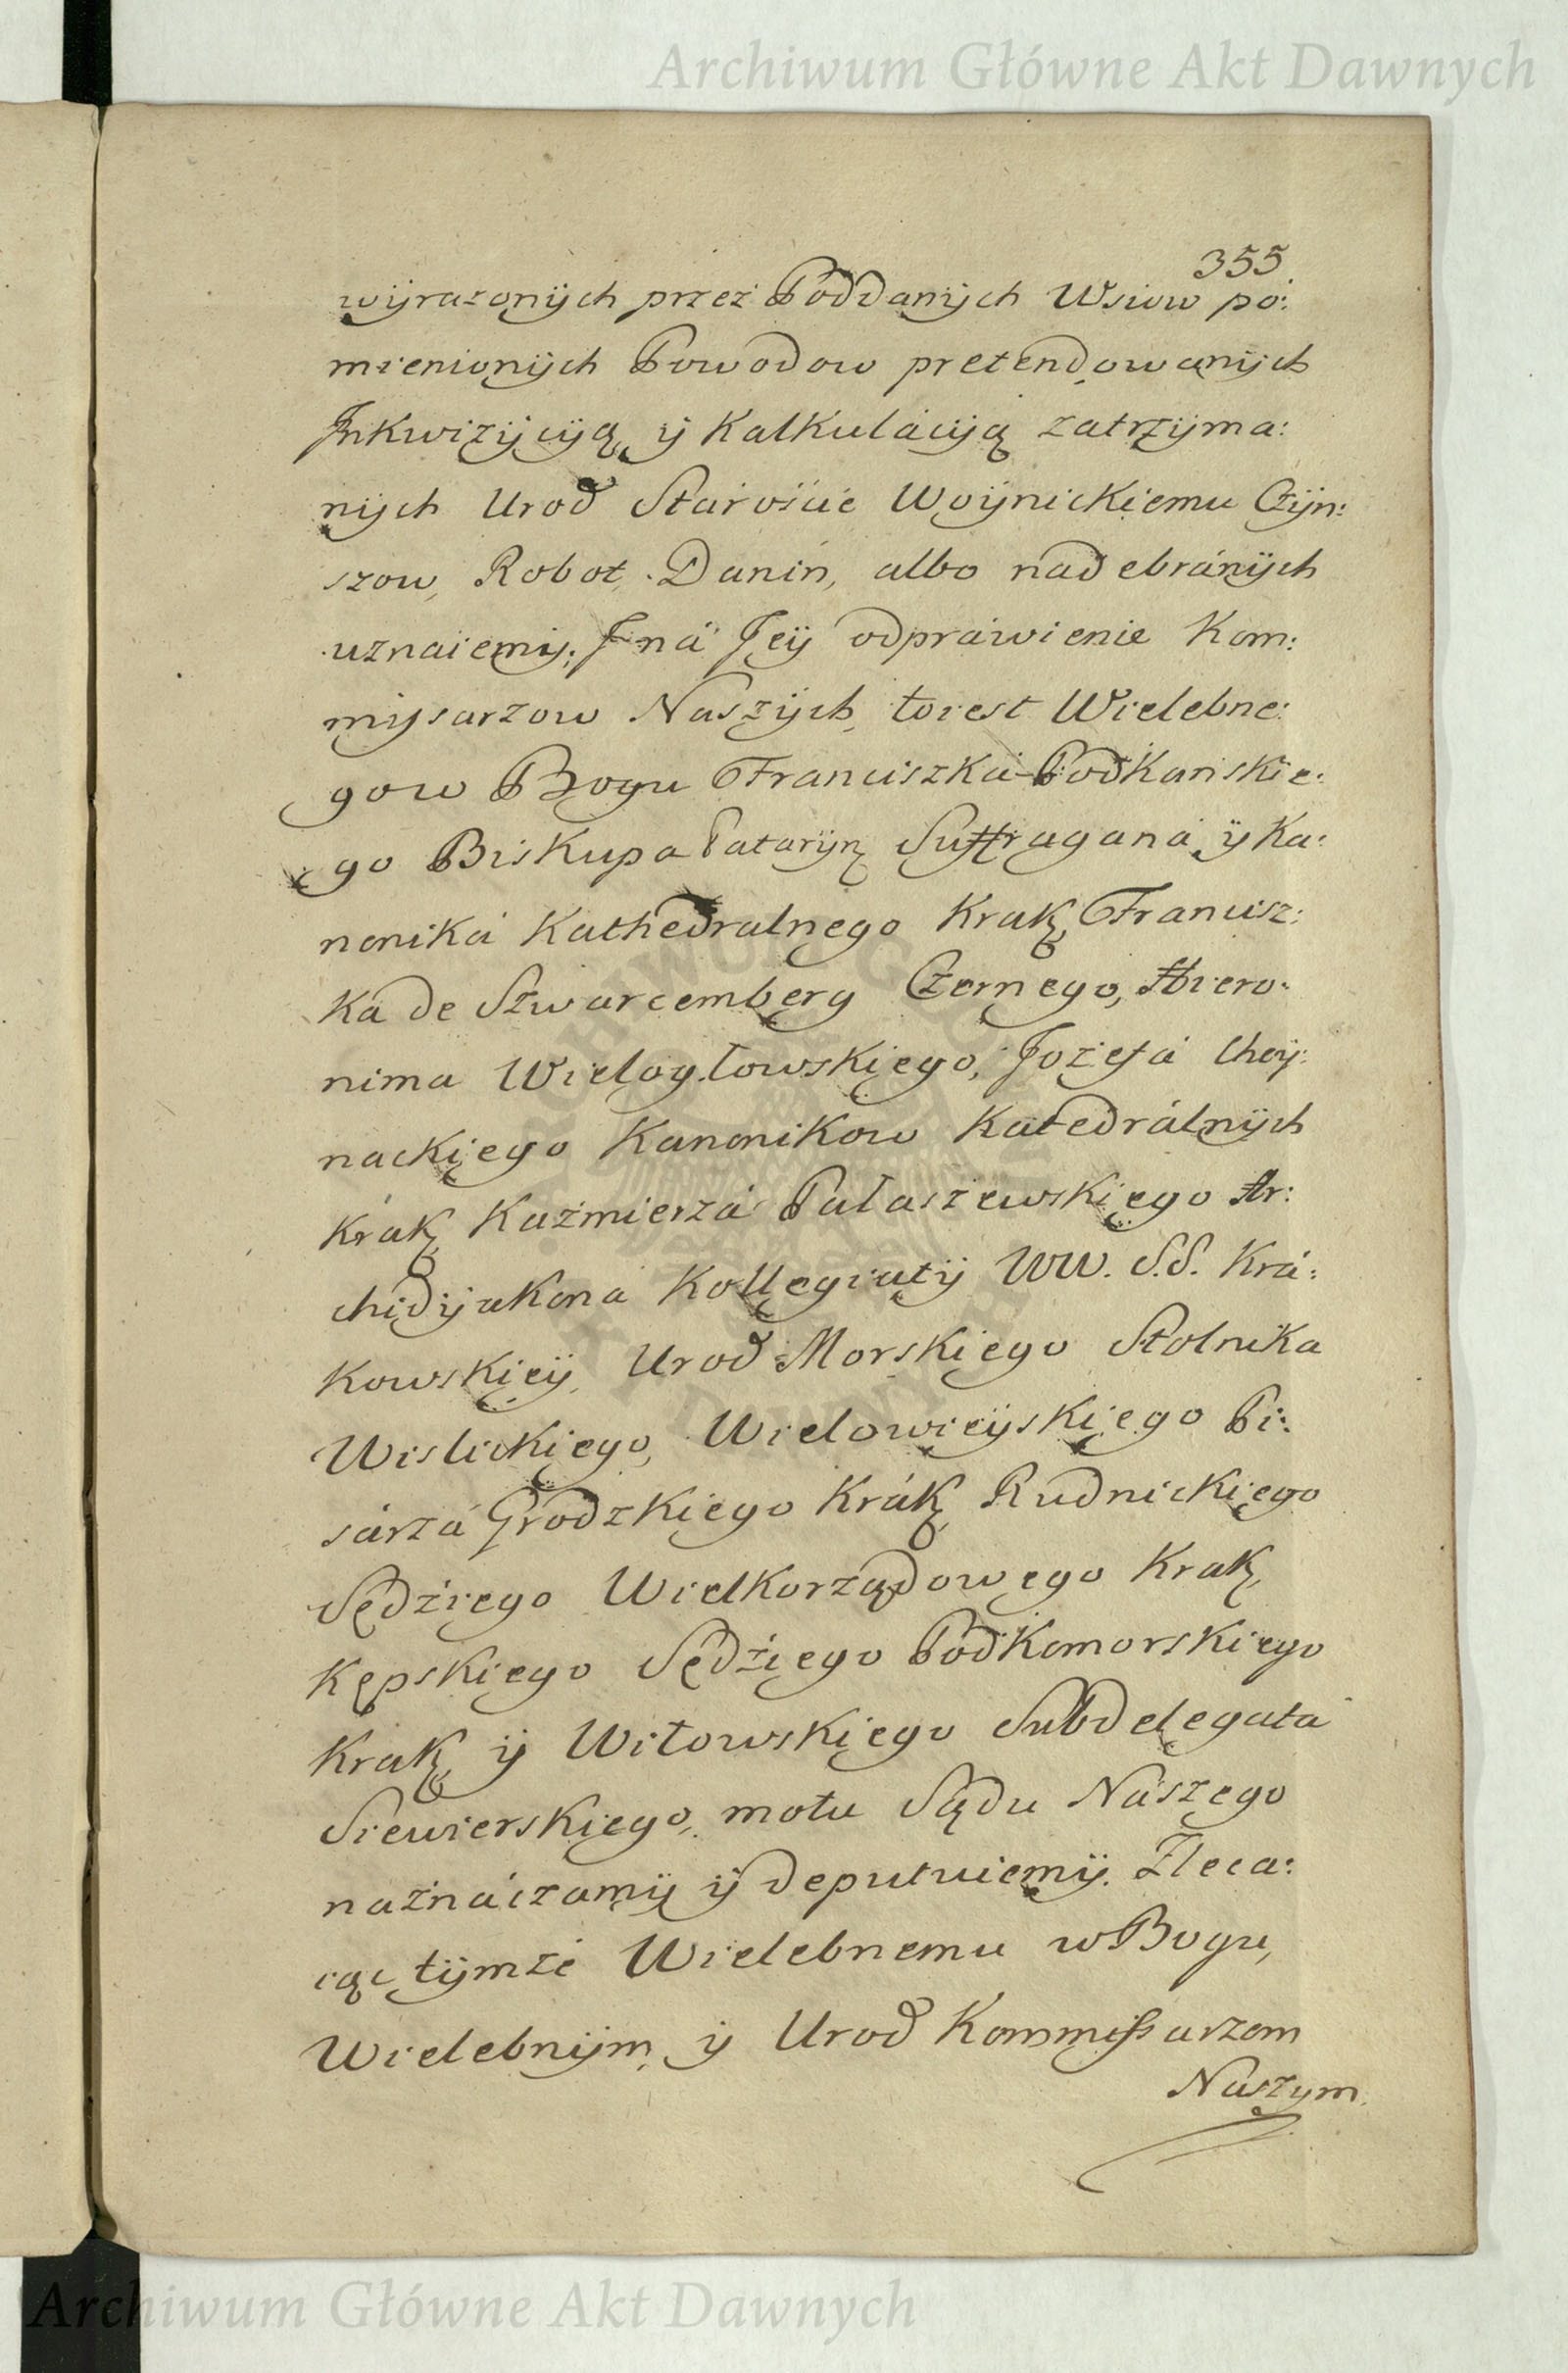 Archiwum Główne Akt Dawnych
355
wÿrazonÿch przez Poddanÿch Wsiow po:
mienionÿch Powodow pretendowanÿch
Jnkwizÿcÿą ÿ Kalkulácÿą zatrzÿma:
nÿch Urod Staroście Woÿnickiemu Czÿn:
szow, Robot, Danin, albo nadebránÿch
uznaiemÿ; J ná Jeÿ odpráwienie Kom:
mÿsarzow Naszÿch, toiest Wielebne:
gow Bogu Franciszká Podkańskie:
go Biskupa Patarÿn Suffragana ÿ Ka:
noniká Kathedralnego Krak, Francisz:
Ka de Szwarcemberg Czernego, Hiero:
nima Wielogłowskiego, Jozefá Choÿ:
nackiego Kanonikow Katedrálnÿch
Krak Kaźmierzá Pałaszewskiego Ar:
chidÿakoná Kollegiatÿ WW. S.S. Krá:
kowskieÿ, Urod Morskiego Stolnika
Wislickiego, Wielowieÿskiego Pi:
sárzá Grodzkiego Krák Rudnickiego
Sędziego Wielkorządowego Krak,
Kępskiego Sędziego Podkomorskiego
Krak ÿ Witowskiego Subdelegata
Siewierskiego, motu Sądu Nászego
náznáczamÿ ÿ deputuiemÿ. Zleca:
iąc tÿmże Wielebnemu w Bogu,
Wielebnÿm, ÿ Urod Kommissarzom
Naszym.
Archiwum Główne Akt Dawnych